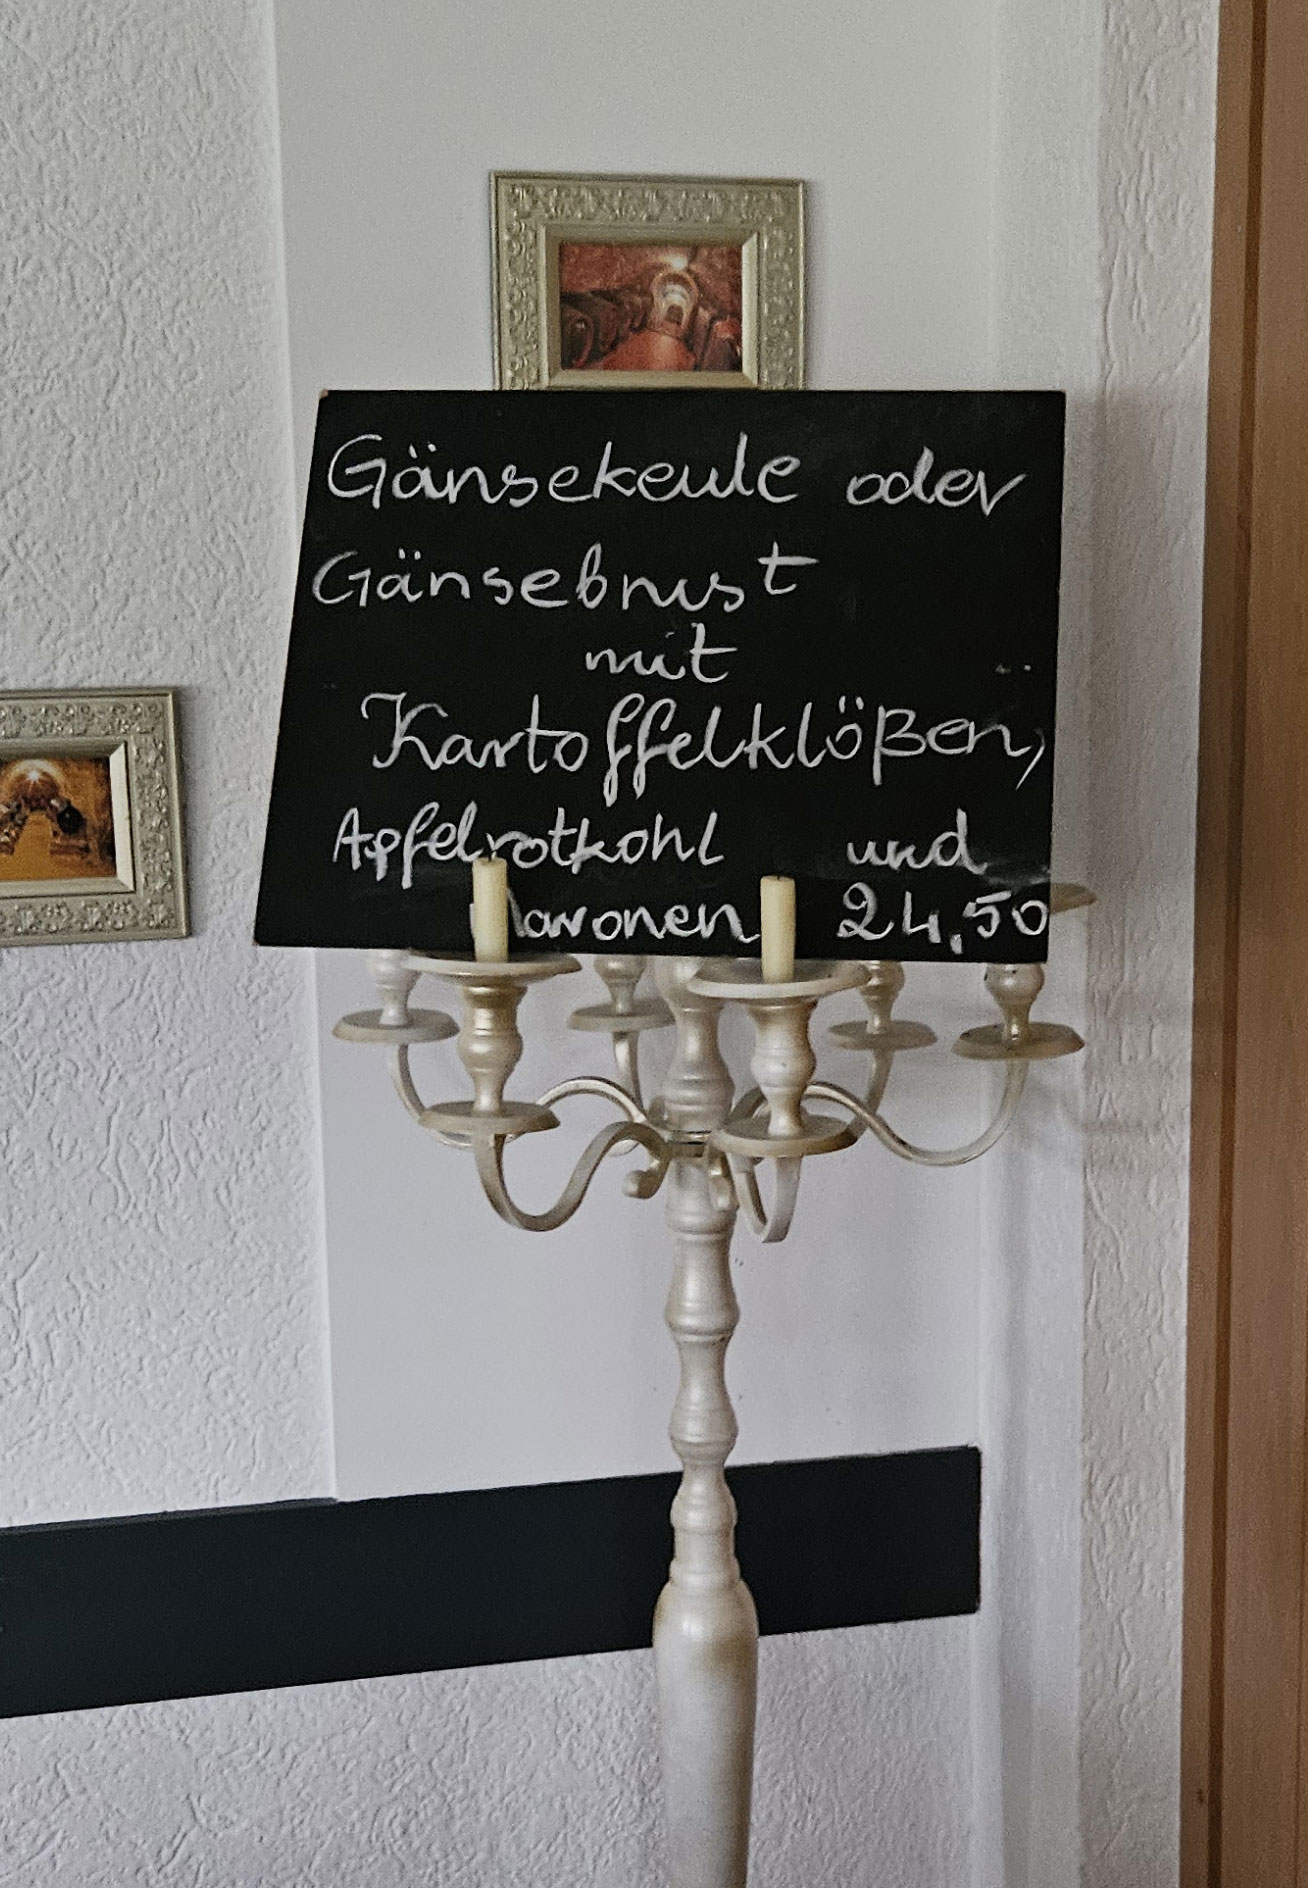 Gänsekeule oder
Gänsebrust
mit
Kartoffelklößen,
Apfelrotkohl und
Maronen 24,50